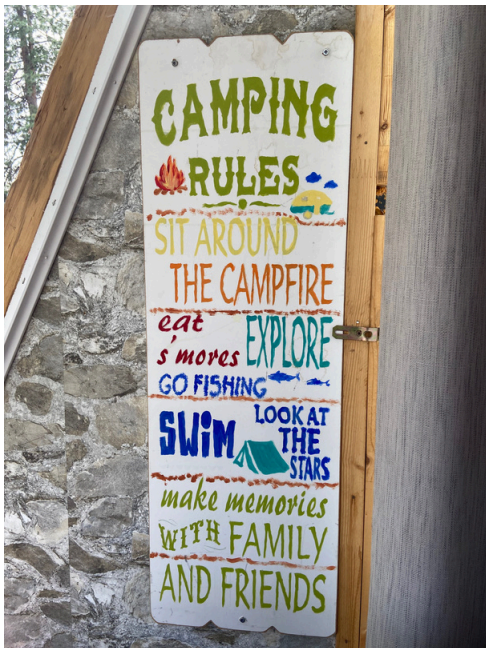 CAMPING
RULES
SIT AROUND
THE CAMPFIRE
eat
s'mores
EXPLORE
GO FISHING
SWiM
LOOK AT
THE
STARS
make memories
WITH FAMILY
AND FRIENDS